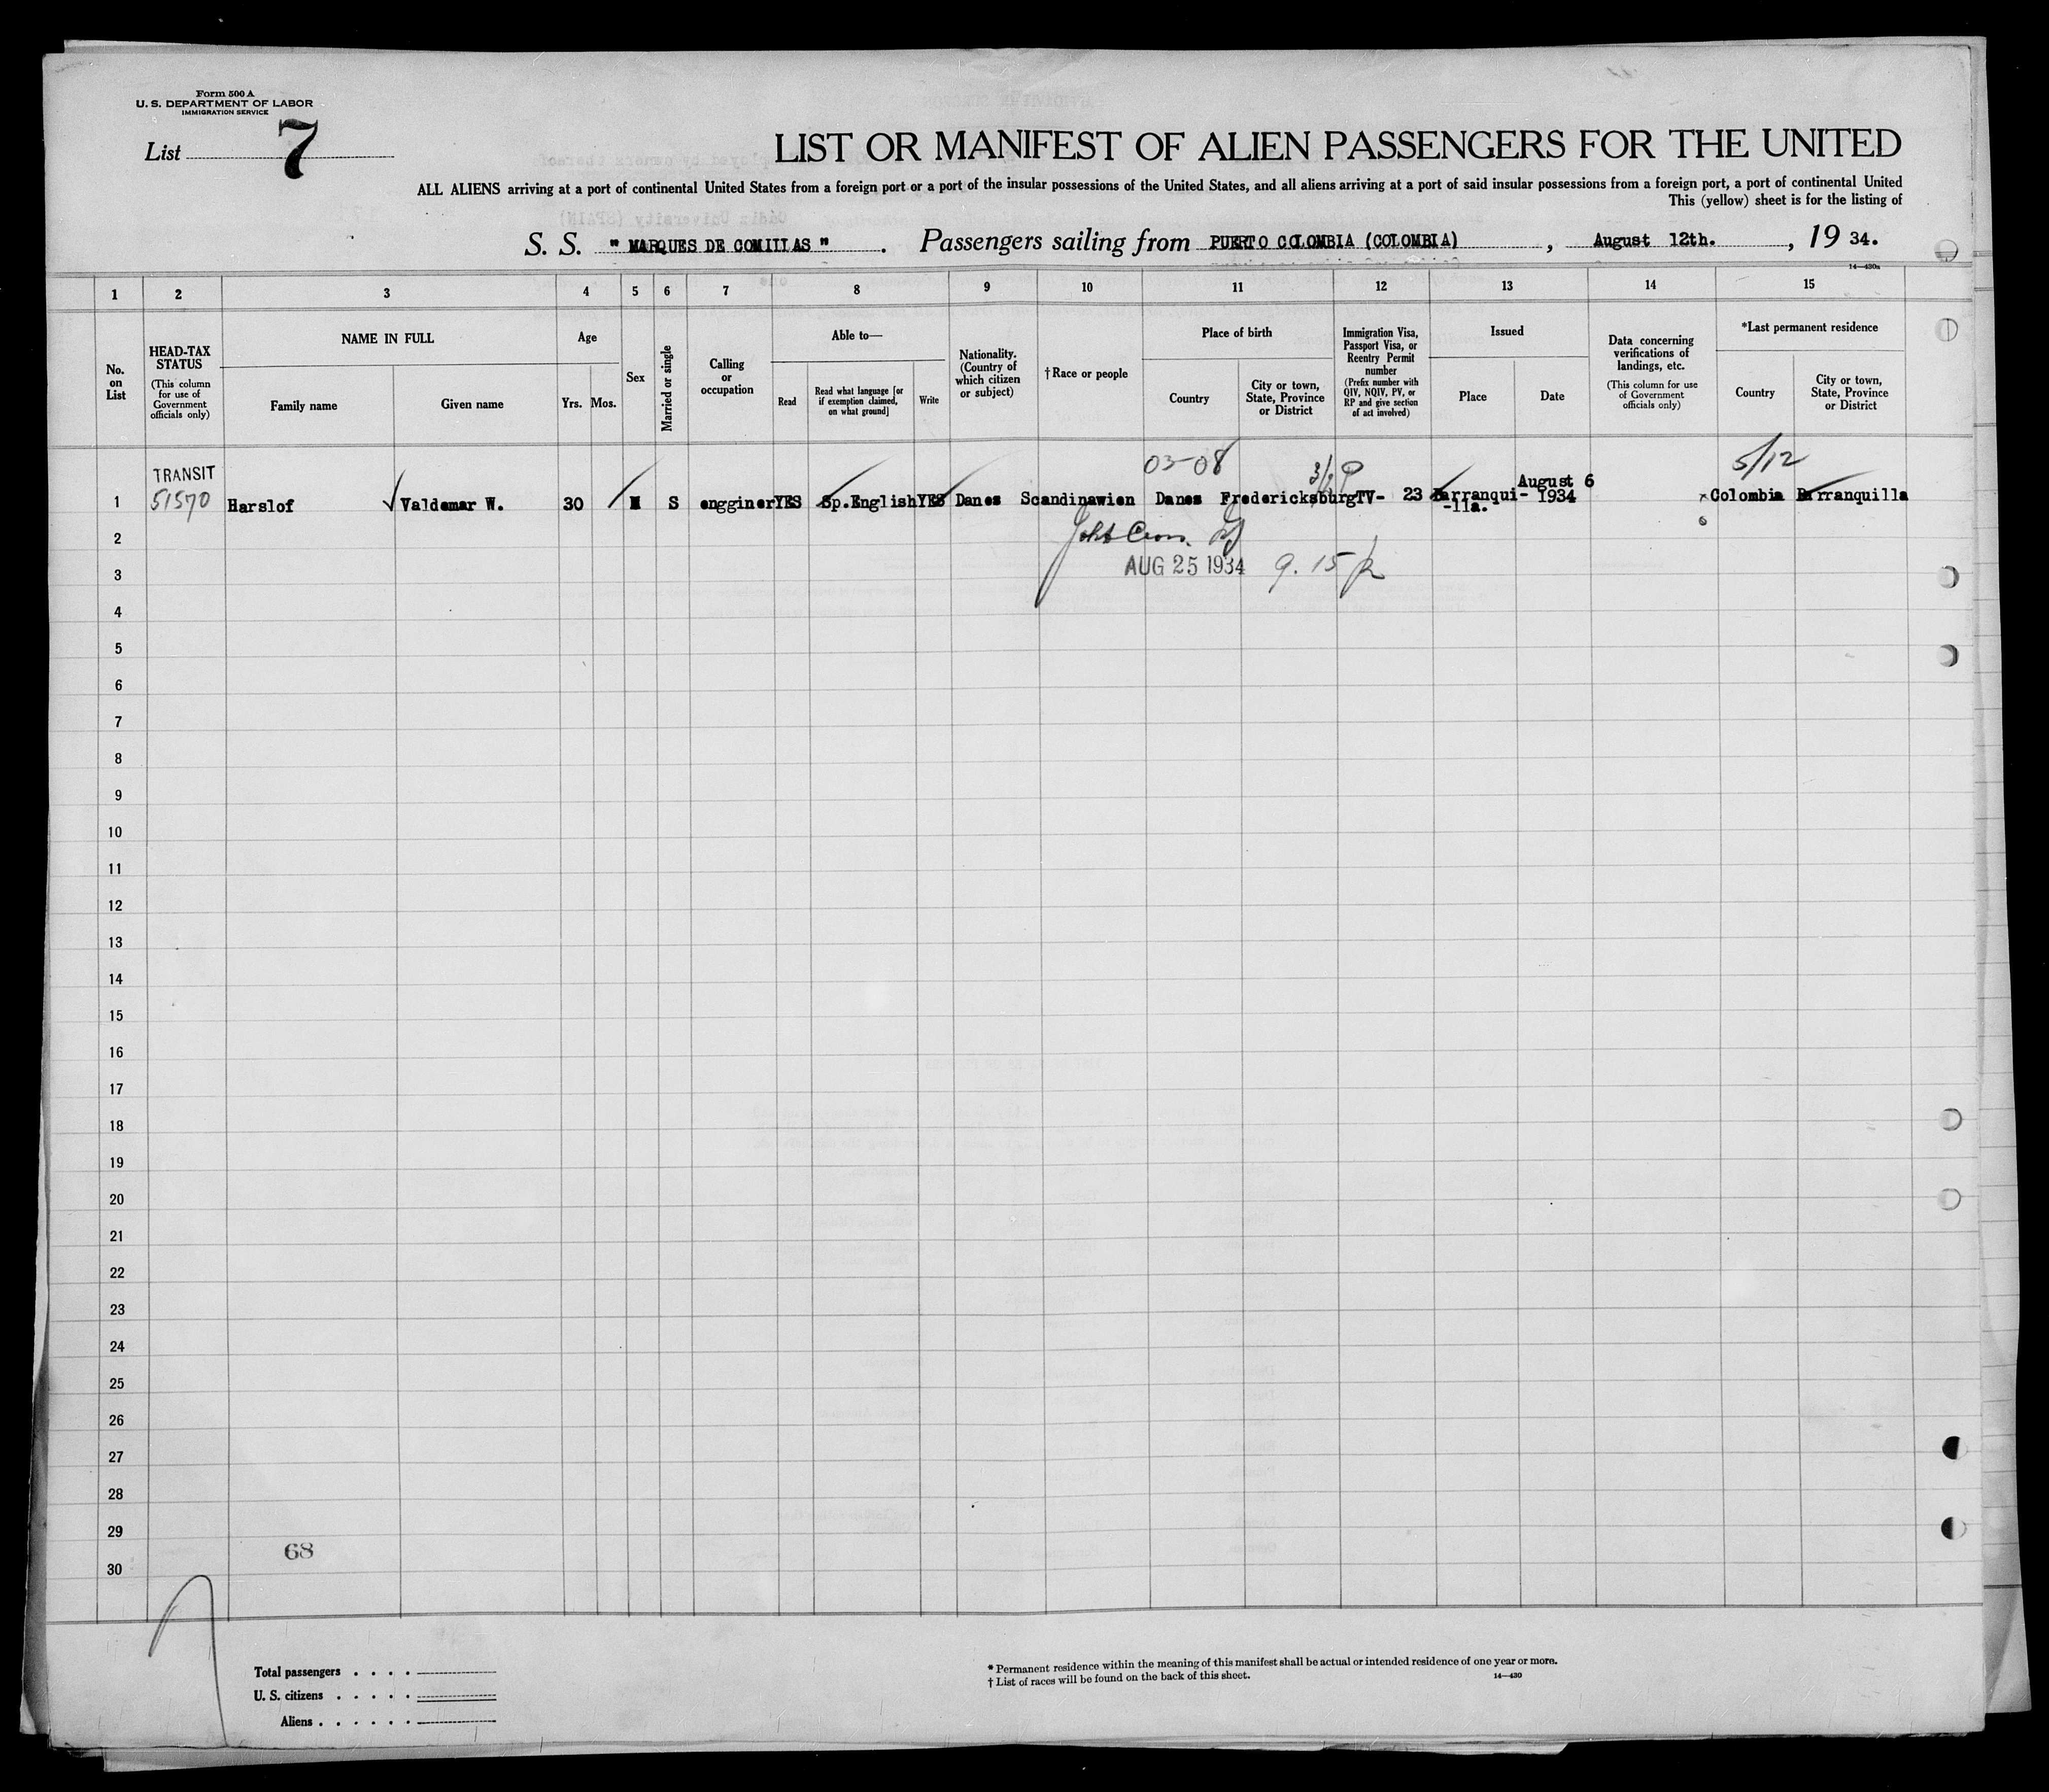 Form 500 A
U. S. DEPARTMENT OF LABOR
IMMIGRATION SERVICE
List 7
LIST OR MANIFEST OF ALIEN PASSENGERS FOR THE UNITED
ALL ALIENS arriving at a port of continental United States from a foreign port or a port of the insular possessions of the United States, and all aliens arriving at a port of said insular possessions from a foreign port, a port of continental United
This (yellow) sheet is for the listing of
S. S. " MARQUES DE COMILLAS ". Passengers sailing from PUERTO COLOMBIA (COLOMBIA), August 12th., 19 34.
14—430a
1 2 3 4 5 6 7 8 9 10 11 12 13 14 15
No. on List
HEAD-TAX STATUS
(This column for use of Government officials only)
NAME IN FULL
Family name
Given name
Age
Yrs. Mos.
Sex
Married or single
Calling or occupation
Able to—
Read
Read what language [or if exemption claimed, on what ground]
Write
Nationality. (Country of which citizen or subject)
†Race or people
Place of birth
Country
City or town, State, Province or District
Immigration Visa, Passport Visa, or Reentry Permit number
(Prefix number with QIV, NQIV, PV, or RP and give section of act involved)
Issued
Place
Date
Data concerning verifications of landings, etc.
(This column for use of Government officials only)
*Last permanent residence
Country
City or town, State, Province or District
TRANSIT 03-08 3/2 P 5/12
August 6
1 51570 Harslof Valdemar W. 30 M S engginer YES Sp.English YES Danes Scandinawien Danes Fredericksburg TV- 23 Barranqui- 1934 Colombia Barranquilla
-lla.
2
3 AUG 25 1934 9. 15
4
5
6
7
8
9
10
11
12
13
14
15
16
17
18
19
20
21
22
23
24
25
26
27
28
29
68
30
Total passengers . . . .
U. S. citizens . . . . .
Aliens . . . . . .
* Permanent residence within the meaning of this manifest shall be actual or intended residence of one year or more.
† List of races will be found on the back of this sheet. 14—430